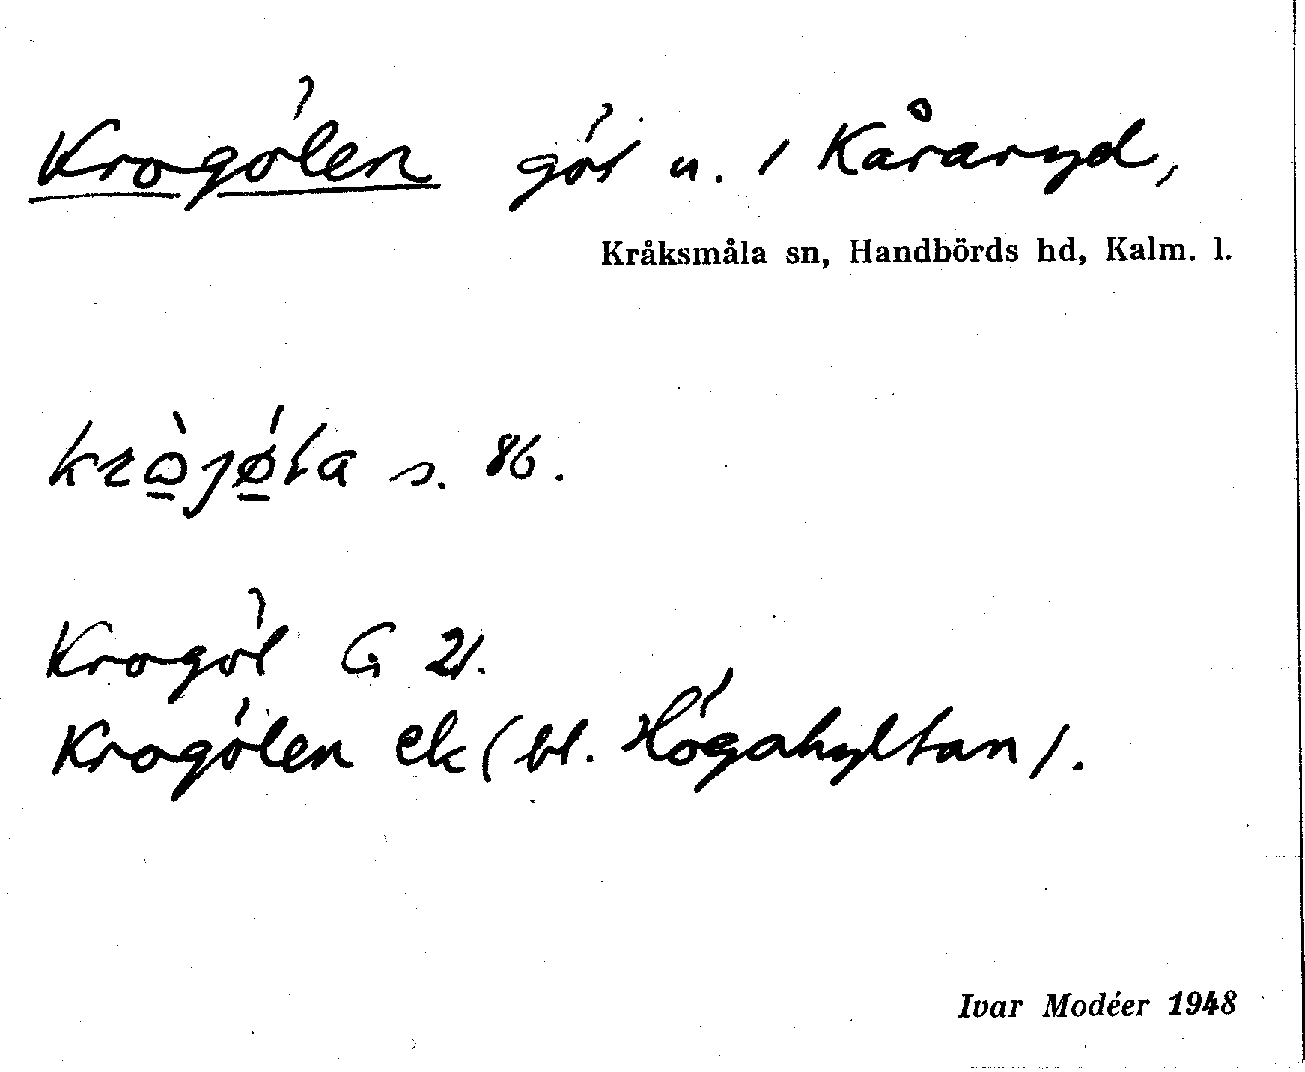 Krogölen göl u. / Kåraryd,
Kråksmåla sn, Handbörds hd, Kalm. l.
s. 86.
Krogöl G 21.
Krogölen ek (bl. Högahyltan).
Ivar Modéer 1948